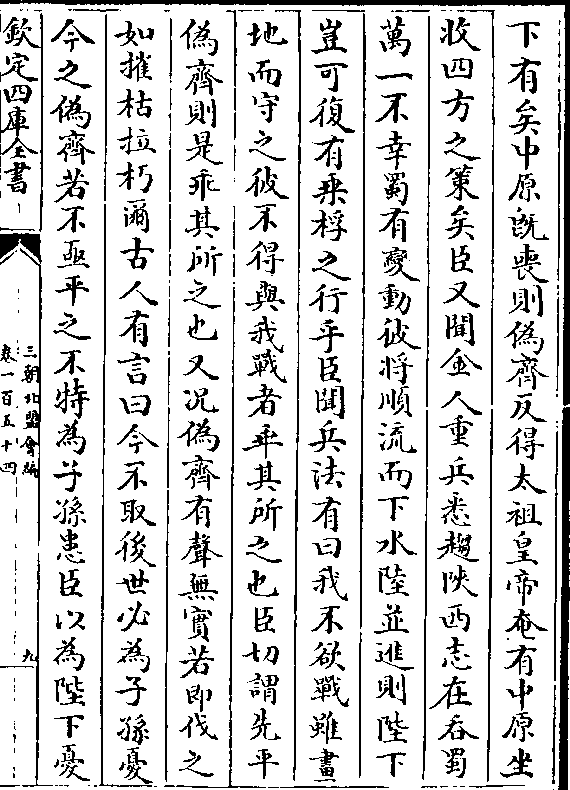 下有矣中原既喪則偽齊反得太祖皇帝奄有中原坐
收四方之策矣臣又聞金人重兵悉趨陜西志在吞蜀
萬一不幸蜀有變動彼將順流而下水陸並進則陛下
豈可復有乗桴之行乎臣聞兵法有曰我不欲戰雖畫
地而守之彼不得與我戰者乖其所之也臣切謂先平
偽齊則是乖其所之也又況偽齊有聲無實若即伐之
如摧枯拉朽爾古人有言曰今不取後世必為子孫憂
今之偽齊若不亟平之不特為子孫患臣以為陛下憂
欽定四庫全書
三朝北盟會編
卷一百五十四
九